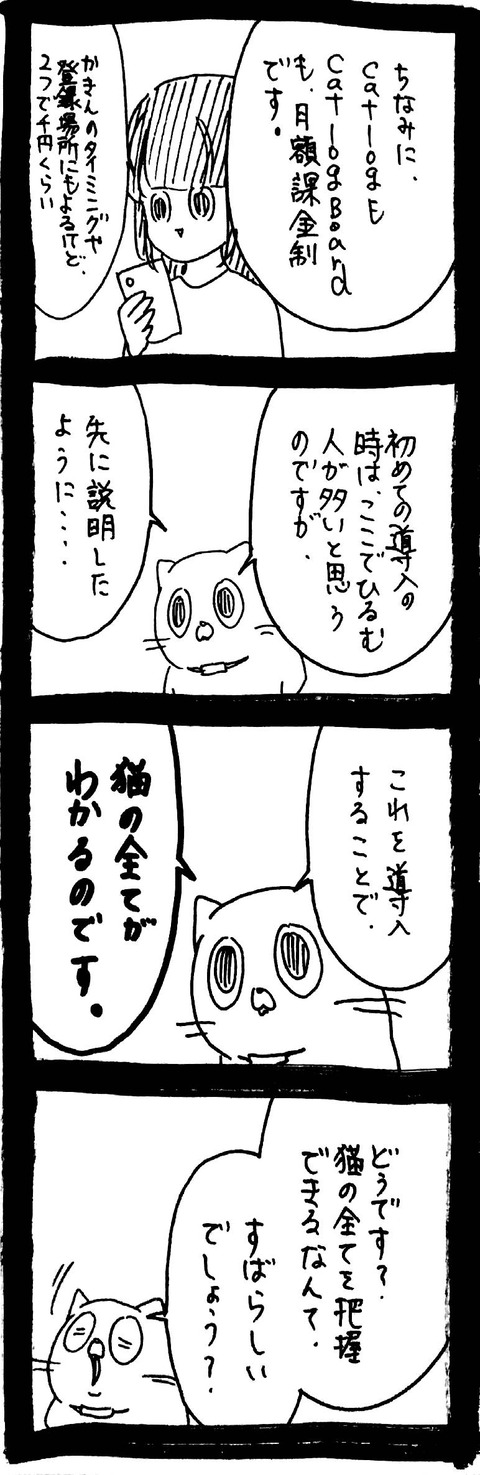 ちなみに、
Catlogも
CatlogBoard
も、月額課金制
です。
かきんのタイミングや
登録場所にもよるけど、
2つで千円くらい
初めての導入の
時は、ここでひるむ
人が多いと思う
のですが、
先に説明した
ように・・・・
これを導入
することで、
猫の全てが
わかるのです。
どうです？
猫の全てを把握
できるなんて、
すばらしい
でしょう？